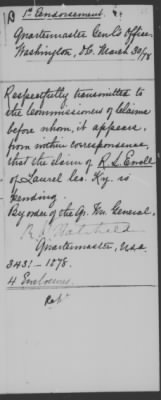 1st Endorsement.
Quartermaster Genl's Office,
Washington, D.C. March 30/78
Respectfully transmitted to
the Commissioners of Claims
before whom, it appears,
from within correspondence,
that the claim of R. L. Ewell
of Laurel Co. Ky. is
pending.
By order of the Qr. Mr. General,
Quartermaster, U.S.A.
3431-1878.
4 Enclosures.